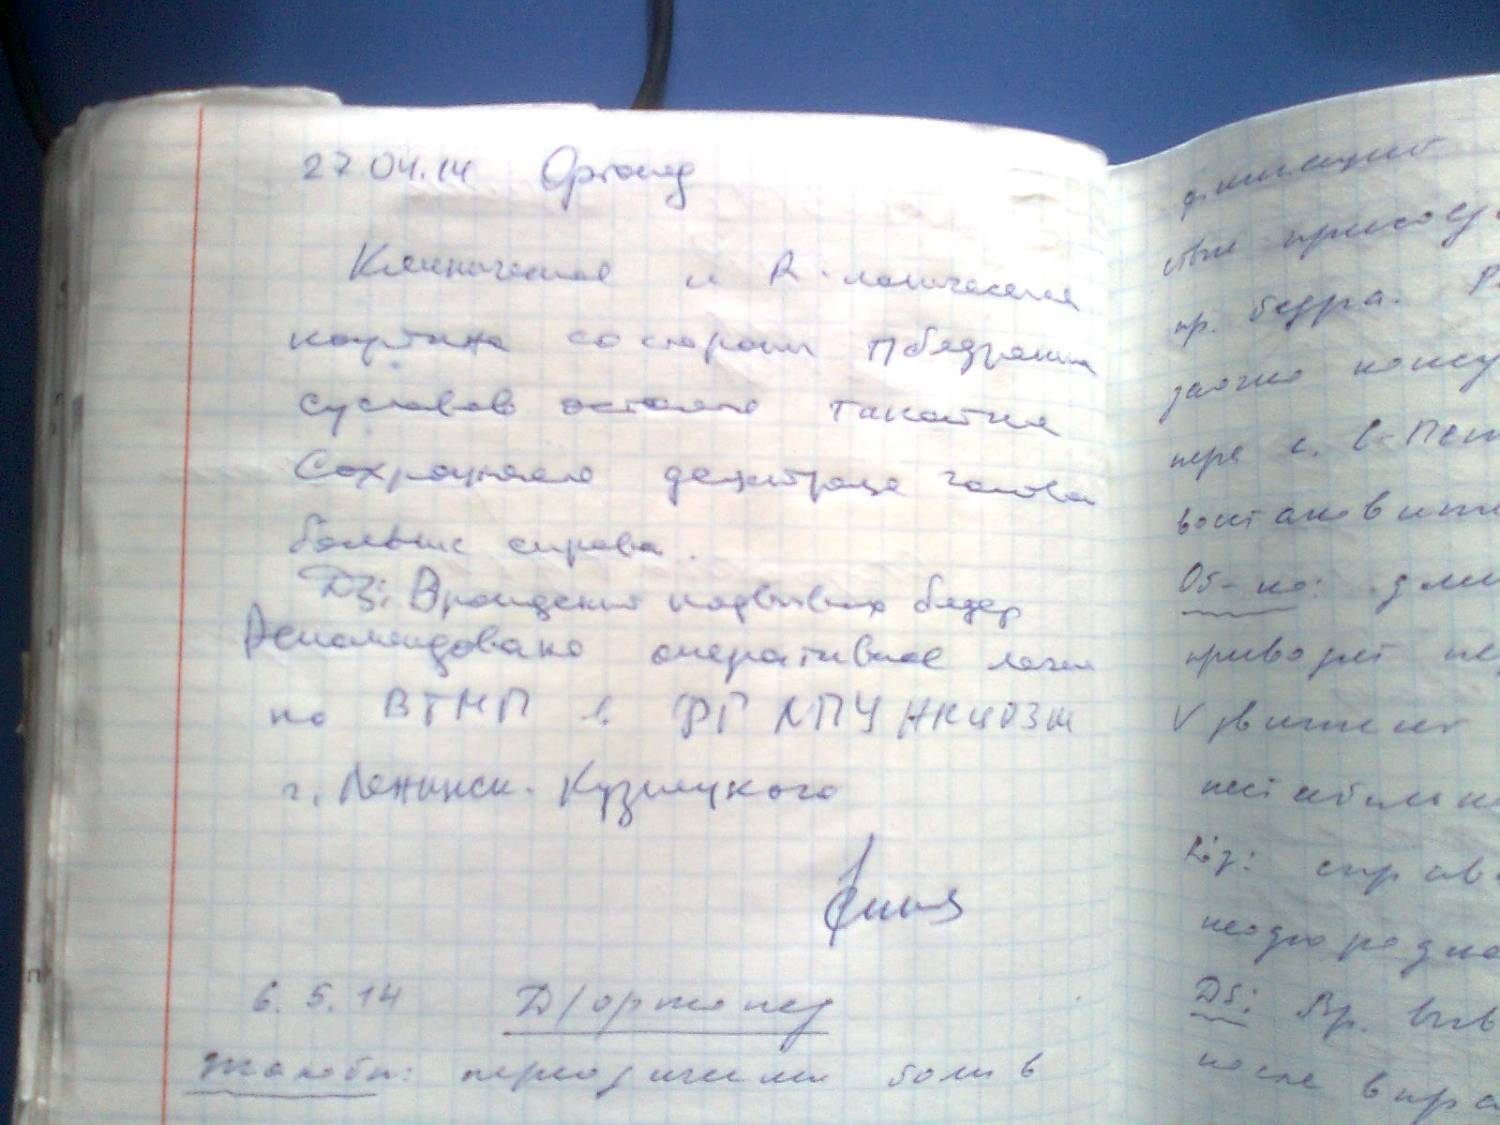 27.04.14 Ортопед
Клиническая и R-логическая
картина со стороны т/бедренных
суставов остается такой же
Сохраняется децентрация головок
больше справа.
Dз: Врожденный подвывих бедер
Рекомендовано оперативное лечен
по ВТМП в ФГ ЛПУ НКЦОЗШ
г. Ленинск-Кузнецкого
6.5.14 Д/ортопед
Жалобы: периодические боли в
пр. бедра.
заочно консу
пера г. С-Пет
востановит
Об-но:
приводят
V движения
нестабильн
R-г: справа
неоднородно
DS: Вр. выв
после впра